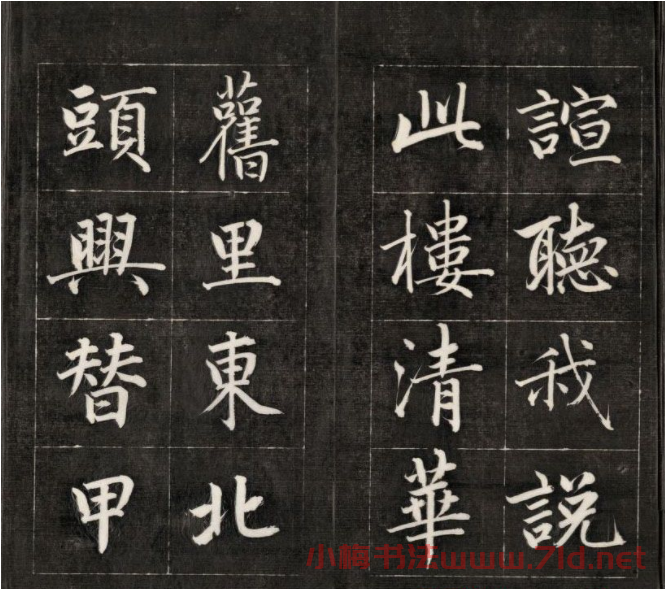 諠聽我說
此樓清華
舊里東北
頭興替甲
小楕书法www.71d.net